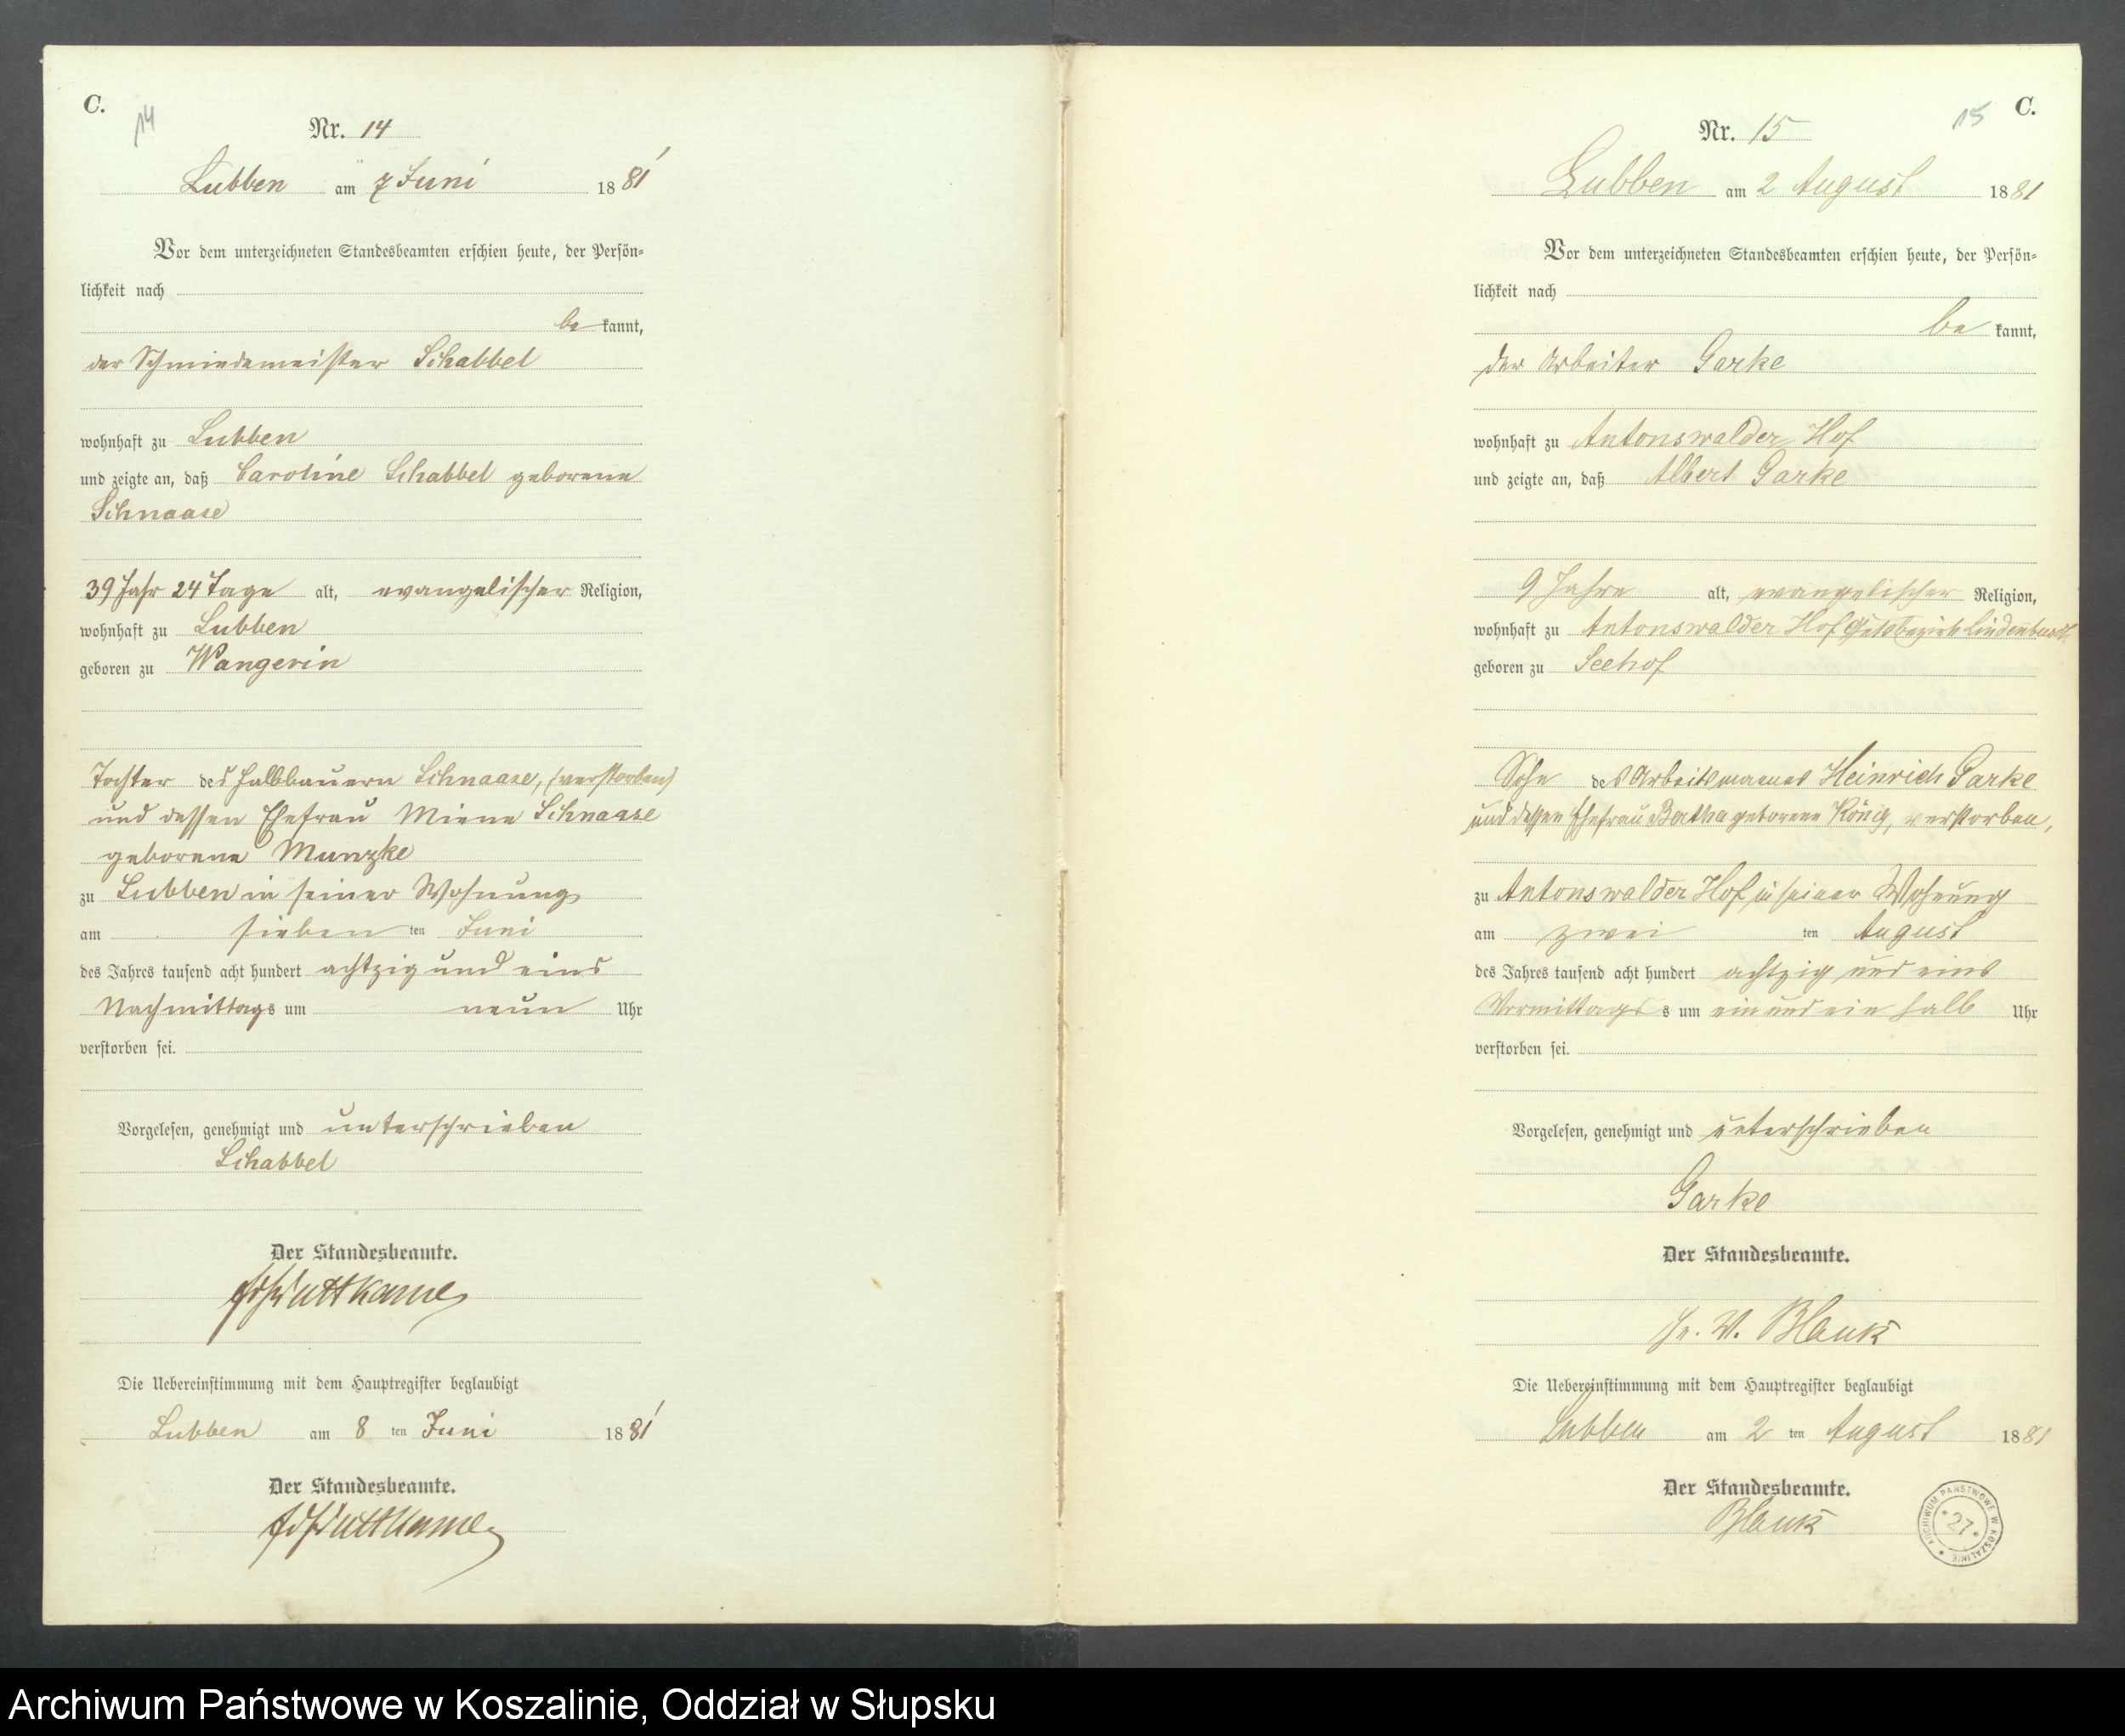 C.
14
Nr. 14
Lubben am 7 Juni 1881
Vor dem unterzeichneten Standesbeamten erschien heute, der Persön-
lichkeit nach
be kannt,
der Schmiedemeister Schabbel
wohnhaft zu Lubben
und zeigte an, daß Caroline Schabbel geborene
Schnaase
39 Jahr 24 Tage alt, evangelischer Religion,
wohnhaft zu Lubben
geboren zu Wangerin
Tochter des Halbbauern Schnaase, (verstorben)
und dessen Ehefrau Miene Schnaase
geborene Munzke
zu Lubben in seiner Wohnung
am sieben ten Juni
des Jahres tausend acht hundert achtzig und eins
Nachmittags um neun Uhr
verstorben sei.
Vorgelesen, genehmigt und unterschrieben
Schabbel
Der Standesbeamte.
Puttkamer
Die Uebereinstimmung mit dem Hauptregister beglaubigt
Lubben am 8 ten Juni 1881
Der Standesbeamte.
Puttkamer
C.
15
Nr. 15
Lubben am 2 August 1881
Vor dem unterzeichneten Standesbeamten erschien heute, der Persön-
lichkeit nach
be kannt,
der Arbeiter Garke
wohnhaft zu Antonswalder Hof
und zeigte an, daß Albert Garke
9 Jahre alt, evangelischer Religion,
wohnhaft zu Antonswalder Hof Gutsbezirk Lindenbusch
geboren zu Seehof
Sohn des Arbeitsmannes Heinrich Garke
und dessen Ehefrau Bertha geborene König, verstorben,
zu Antonswalder Hof in seiner Wohnung
am zwei ten August
des Jahres tausend acht hundert achtzig und eins
Vormittags s um ein und ein halb Uhr
verstorben sei.
Vorgelesen, genehmigt und unterschrieben
Garke
Der Standesbeamte.
In. V. Blank
Die Uebereinstimmung mit dem Hauptregister beglaubigt
Lubben am 2 ten August 1881
Der Standesbeamte.
Blank
ARCHIWUM PAŃSTWOWE W KOSZALINIE
* 27 *
Archiwum Państwowe w Koszalinie, Oddział w Słupsku